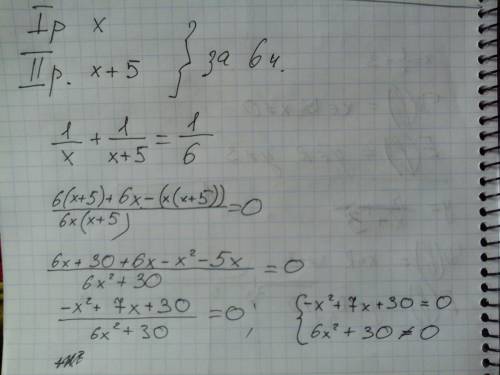 I р x
II р. x+5 } за 6ч.
1/x + 1/(x+5) = 1/6
(6(x+5)+6x-(x(x+5)))/(6x(x+5)) = 0
(6x+30+6x-x²-5x)/(6x²+30) = 0
(-x²+7x+30)/(6x²+30) = 0; { -x²+7x+30=0
6x²+30≠0